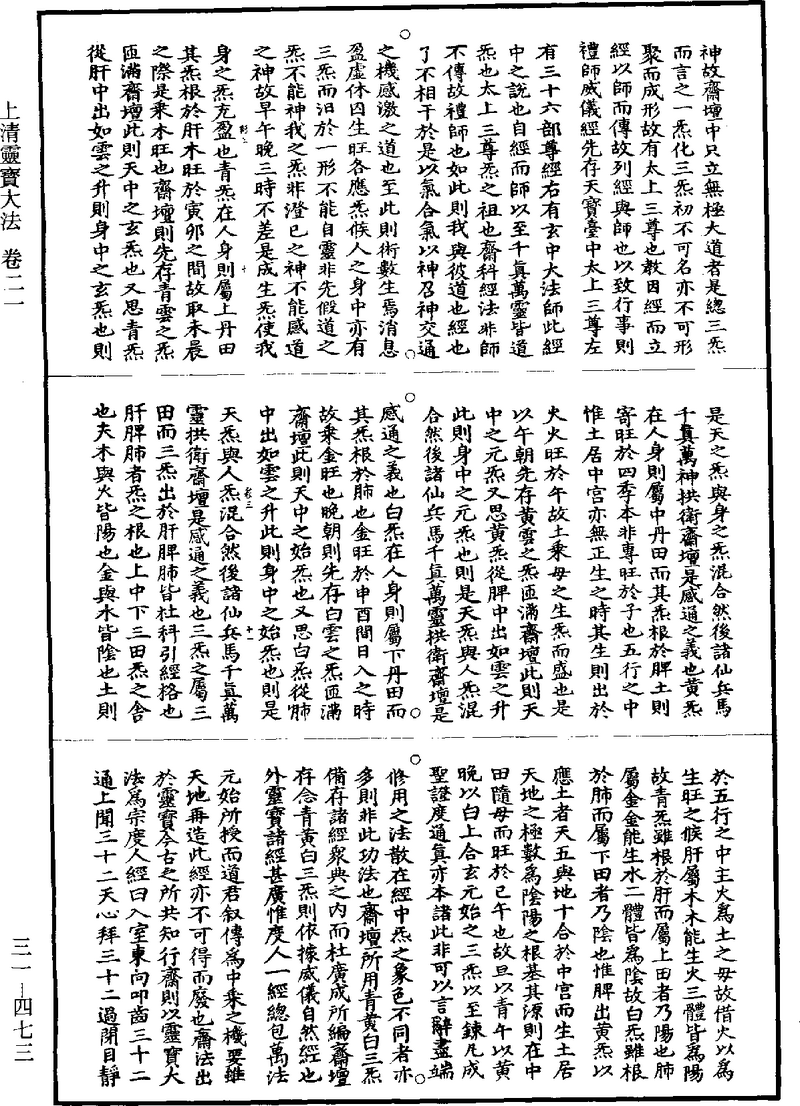 上清靈寶大法　卷二一
三一—四七三
神故齋壇中只立無極大道者是總三炁
而言之一炁化三炁初不可名亦不可形
聚而成形故有太上三尊也教因經而立
經以師而傳故列經與師也以致行事則
禮師威儀經先存天寶臺中太上三尊左
有三十六部尊經右有玄中大法師此經
中之說也自經而師以至千真萬靈皆道
炁也太上三尊炁之祖也齋科經法非師
不傳故禮師也如此則我與彼道也經也
了不相干於是以氣合氣以神召神交通
之機感激之道也至此則術數生焉消息
盈虛休囚生旺各應炁候人之身中亦有
三炁而汩於一形不能自靈非先假道之
炁不能神我之炁非澄已之神不能感道
之神故早午晚三時不差是成生炁使我
身之炁充盈也青炁在人身則屬上丹田
其炁根於肝木旺於寅卯之間故取未晨
之際是乘木旺也齋壇則先存青雲之炁
匝滿齋壇此則天中之玄炁也又思青炁
從肝中出如雲之升則身中之玄炁也則
是天之炁與身之炁混合然後諸仙兵馬
千真萬神拱衛齋壇是感通之義也黃炁
在人身則屬中丹田而其炁根於脾土則
寄旺於四季本非專旺於子也五行之中
惟土居中宮亦無正生之時其生則出於
火火旺於午故土乘母之生炁而盛也是
以午朝先存黃雲之炁匝滿齋壇此則天
中之元炁又思黃炁從脾中出如雲之升
此則身中之元炁也則是天炁與人炁混
合然後諸仙兵馬千真萬靈拱衛齋壇是
感通之義也白炁在人身則屬下丹田而
其炁根於肺也金旺於申酉間日入之時
故乘金旺也晚朝則先存白雲之炁匝滿
齋壇此則天中之始炁也又思白炁從肺
中出如雲之升此則身中之始炁也則是
天炁與人炁混合然後諸仙兵馬千真萬
靈拱衛齋壇是感通之義也三炁之屬三
田而三炁出於肝脾肺皆杜科引經格也
肝脾肺者炁之根也上中下三田炁之舍
也夫木與火皆陽也金與水皆陰也土則
於五行之中主火為土之母故借火以為
生旺之候肝屬木木能生火三體皆為陽
故青炁雖根於肝而屬上田者乃陽也肺
屬金金能生水二體皆為陰故白炁雖根
於肺而屬下田者乃陰也惟脾出黃炁以
應土者天五與地十合於中宮而生土居
天地之極數為陰陽之根基其源則在中
田隨母而旺於巳午也故旦以青午以黃
晚以白上合玄元始之三炁以至鍊凡成
聖證度通真亦本諸此非可以言辭盡端
修用之法散在經中炁之象色不同者亦
多則非此功法也齋壇所用青黃白三炁
備存諸經眾典之內而杜廣成所編齋壇
存念青黃白三炁則依據威儀自然經也
外靈寶諸經甚廣惟度人一經總包萬法
元始所授而道君叙傳為中乘之機要雖
天地再造此經亦不可得而廢也齋法出
於靈寶今古之所共知行齋則以靈寶大
法為宗度人經曰入室東向叩齒三十二
通上聞三十二天心拜三十二過閉目靜